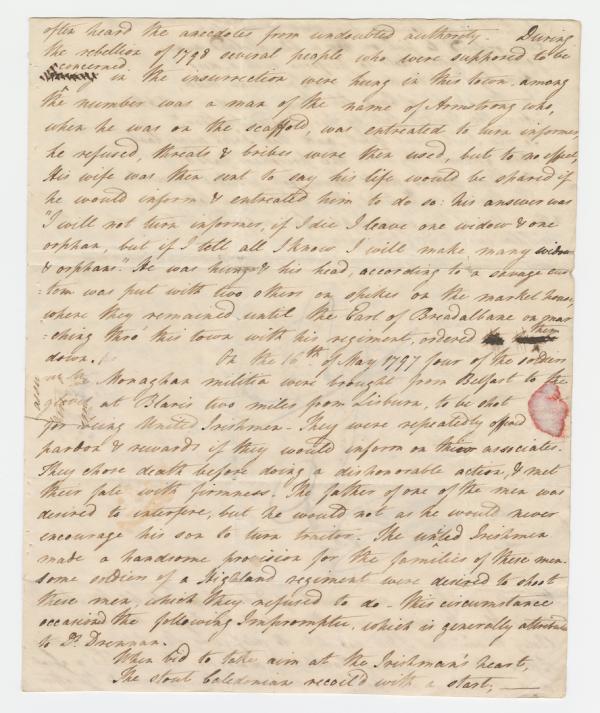 often heard the anecdotes from undoubted authority. During
the rebellion of 1798 several people who were supposed to be
concerned
in the insurrection were hung in this town. among
the number was a man of the name of Armstrong who,
when he was on the scaffold, was entreated to turn informer,
he refused, threats & bribes were then used, but to no effect,
His wife was then sent to say his life would be spared if
he would inform & entreated him to do so: his answer was
"I will not turn informer, if I die I leave one widow & one
orphan, but if I tell all I know I will make many widows
& orphans." He was hung & his head, according to a savage cus
-tom was put with two others on spikes on the market house,
where they remained until the Earl of Breadalbane on mar
-ching thro' this town with his regiment, ordered them
down. On the 16th of May 1797 four of the soldiers
Monaghan militia were brought from Belfast to the
at Blaris two miles from Lisburn, to be shot
for being United Irishmen - They were repeatedly offered
pardon & rewards if they would inform on their associates.
They chose death before doing a dishonorable action, & met
their fate with firmness. The father of one of the men was
desired to interfere, but he would not as he would never
encourage his son to turn traitor. The united Irishmen
made a handsome provision for the families of these men.
some soldiers of a Highland regiment were desired to shoot
these men, which they refused to do - this circumstance
occasioned the following Impromptu, which is generally attributed
to Dr. Drennan.
When bid to take aim at the Irishman's heart,
The stout Caledonian recoil'd with a start, —